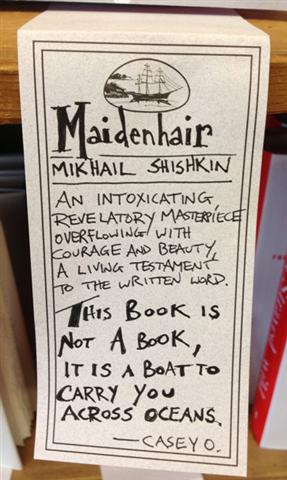 Maidenhair
MIKHAIL SHISHKIN
AN INTOXICATING,
REVELATORY MASTERPIECE
OVERFLOWING WITH
COURAGE AND BEAUTY,
A LIVING TESTAMENT
TO THE WRITTEN WORD.
THIS BOOK IS
NOT A BOOK,
IT IS A BOAT TO
CARRY YOU
ACROSS OCEANS.
—CASEY O.